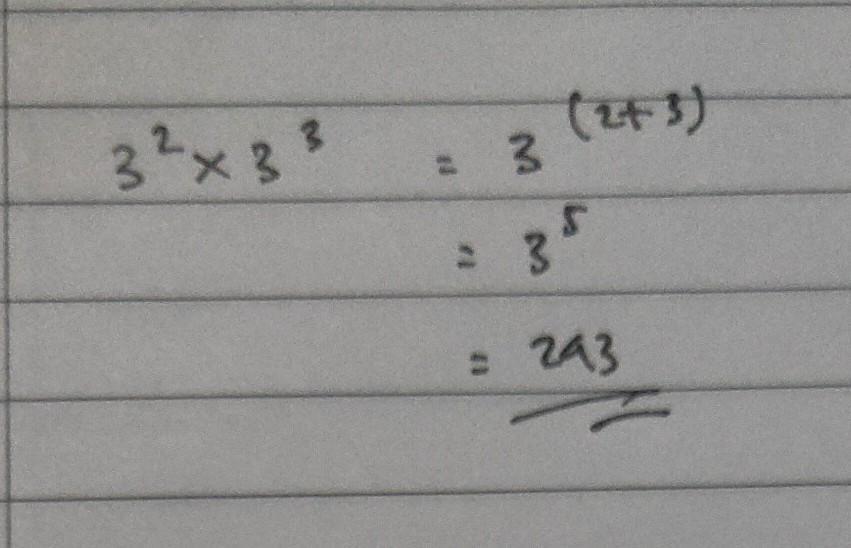 3² × 3³ = 3⁽²⁺³⁾
= 3⁵
= 243